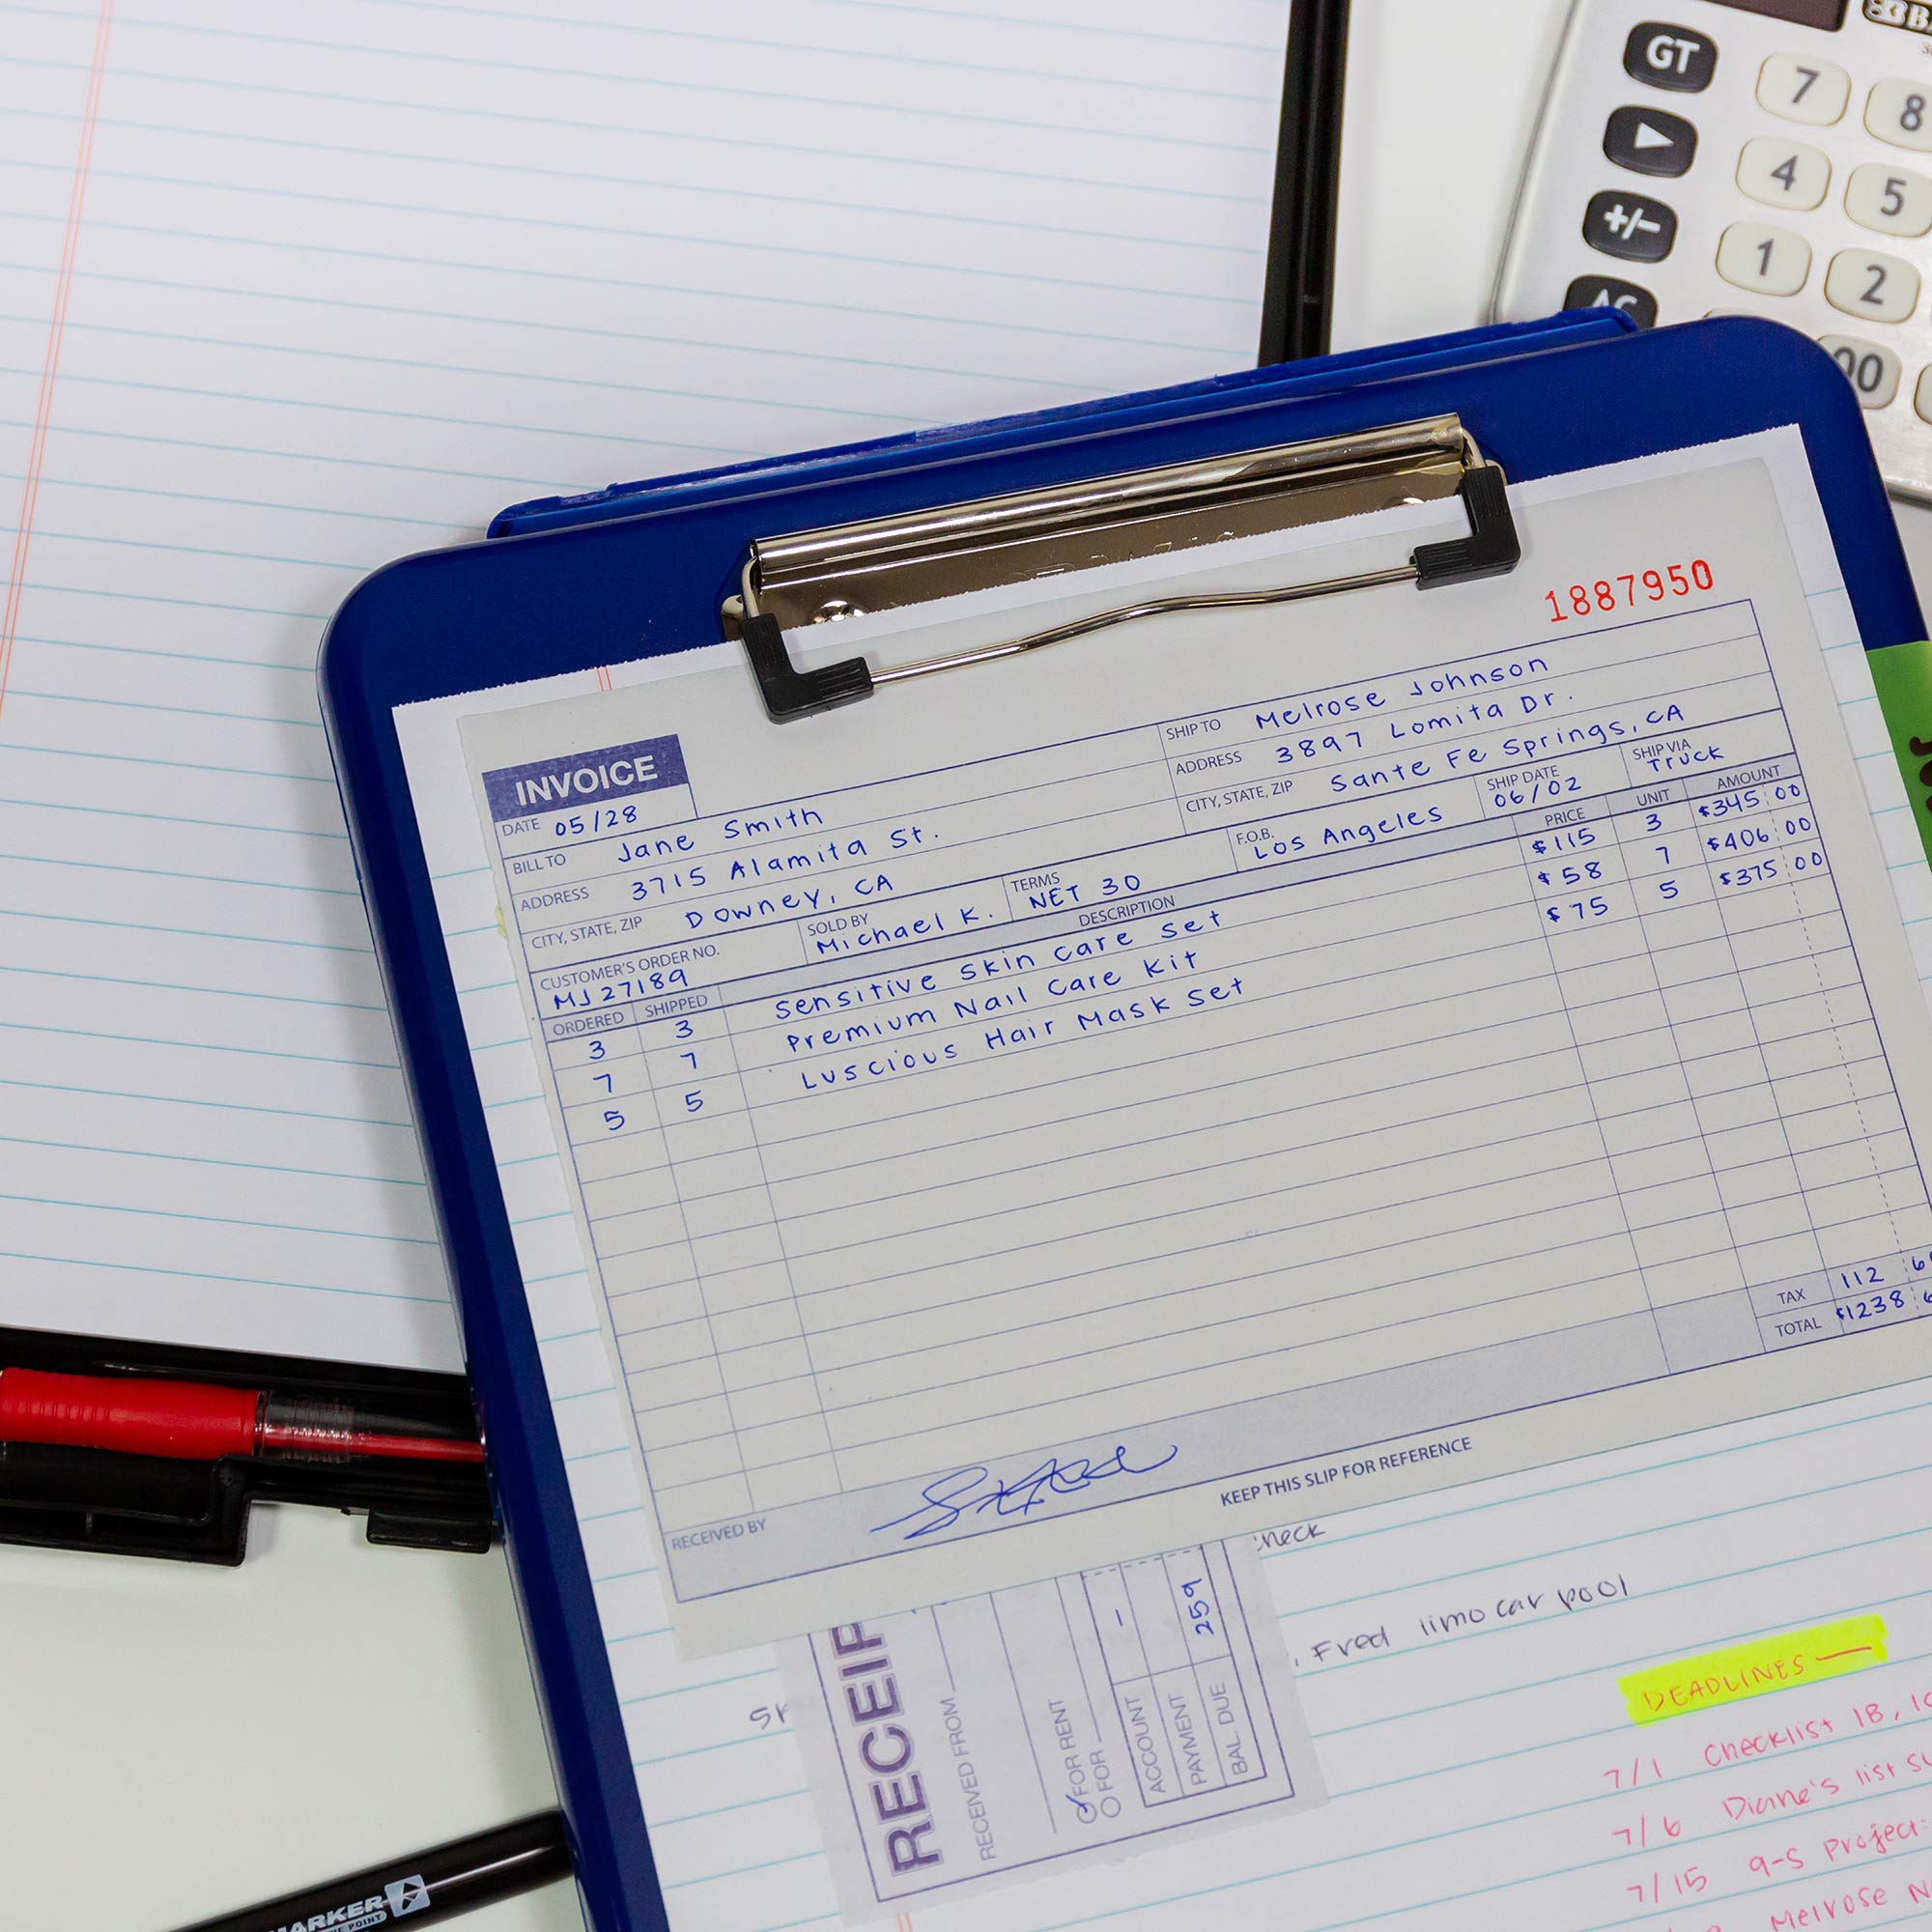 GT 7 8
4 5
+/- 1 2
00
1887950
INVOICE
DATE 05/28
BILL TO Jane Smith
ADDRESS 3715 Alamita St.
CITY, STATE, ZIP Downey, CA
SHIP TO Melrose Johnson
ADDRESS 3897 Lomita Dr.
CITY, STATE, ZIP Sante Fe Springs, CA
CUSTOMER'S ORDER NO. MJ27189
SOLD BY Michael K.
TERMS NET 30
F.O.B. Los Angeles
SHIP DATE 06/02
SHIP VIA Truck
ORDERED SHIPPED DESCRIPTION PRICE UNIT AMOUNT
3 3 Sensitive Skin Care Set $115 3 $345 00
7 7 Premium Nail Care Kit $58 7 $406 00
5 5 Luscious Hair Mask Set $75 5 $375 00
TAX 112
TOTAL $1238
RECEIVED BY
KEEP THIS SLIP FOR REFERENCE
Fred limo car pool
RECEIP
RECEIVED FROM
FOR RENT
FOR
ACCOUNT –
PAYMENT 259
BAL. DUE
DEADLINES —
7/1 Checklist 1B,
7/6 Diane's list
7/15 9-S Project:
Melrose